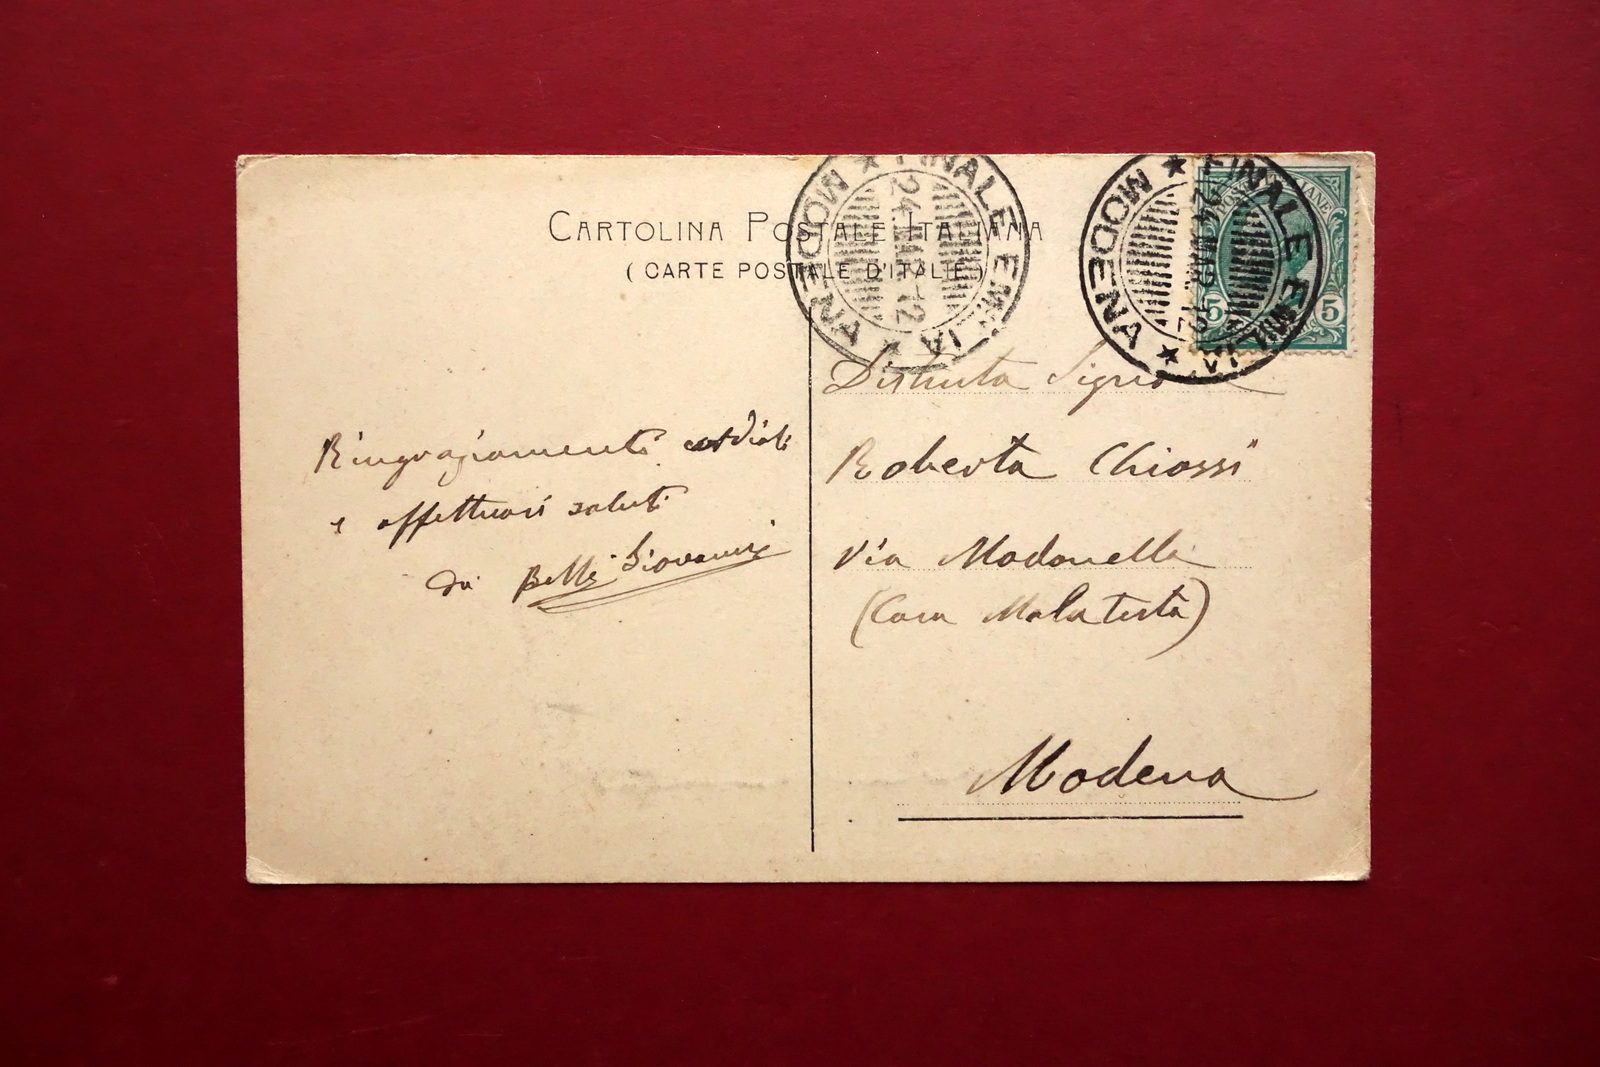 CARTOLINA POSTALE ITALIANA
(CARTE POSTALE D'ITALIE)
FINALE EMILIA
24.MAR.12
MODENA
FINALE EMILIA
24.MAR.12
MODENA
POSTE ITALIANE
5 5
Ringraziamenti cordiali
e affettuosi saluti
da Belli Giovanni
Distinta Sigra
Roberta Chiossi
Via Modonella
(Casa Malatesta)
Modena